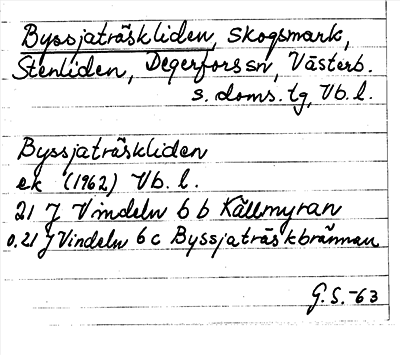 Byssjaträskliden, skogsmark,
Stenliden, Degerfors sn, Västerb.
s. doms. tg, Vb. l.
Byssjaträskliden
ek (1962) Vb. l.
21 J Vindeln 6 b Källmyran
0.21 J Vindeln 6 c Byssjaträskbrännan
G.S. -63